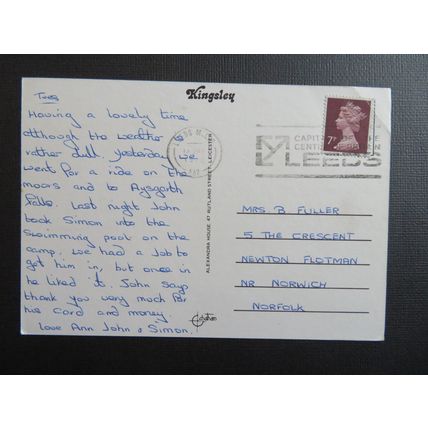 Kingsley
Tues
Having a lovely time
although the weather is
rather dull. Yesterday we
went for a ride on the
moors and to Aysgarth
falls. Last night John
took Simon into the
swimming pool on the
camp. We had a job to
get him in, but once in
he liked it. John says
thank you very much for
his card and money.
Love Ann John & Simon.
ALEXANDRA HOUSE 47 RUTLAND STREET, LEICESTER
7P
LEEDS
CAPITAL OF THE
LEEDS
MRS B FULLER
5 THE CRESCENT
NEWTON FLOTMAN
NR NORWICH
NORFOLK